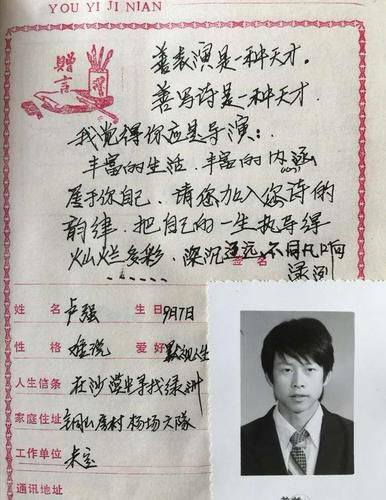 YOU YI JI NIAN
赠言
善表演是一种天才.
善写诗是一种天才.
我觉得你应是导演:
丰富的生活.丰富的内涵
属于你自己.请您加入您诗的
韵律.把自己的一生执导得
灿烂多彩.深沉 远.不同凡响
签名
姓名 卢强 生日 9月7日
性格 难说 爱好 默视人生
人生信条 在沙漠中寻找绿洲
家庭住址 铜山房村杨场大队
工作单位 未定
通讯地址